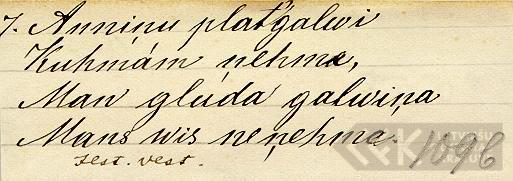 7. Anniņu platgalwi
Kuhmām ņehme,
Man gluda galwiņa
Mans wis neņehme.
sest. vest.
1096